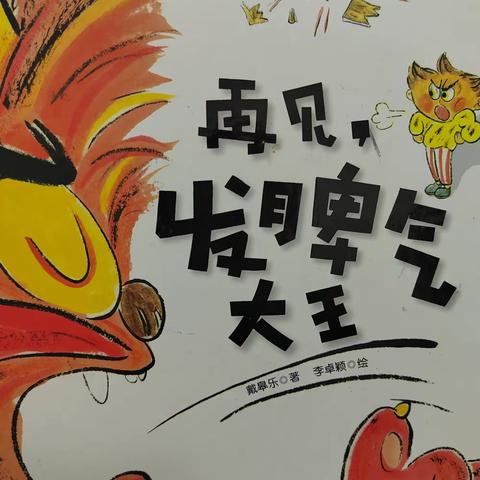 再见，
发脾气
大王
戴皋乐◎著 李卓颖◎绘